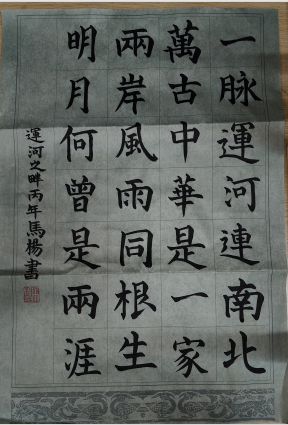 一脉運河連南北
萬古中華是一家
兩岸風雨同根生
明月何曾是兩涯
運河之畔丙年馬楊書